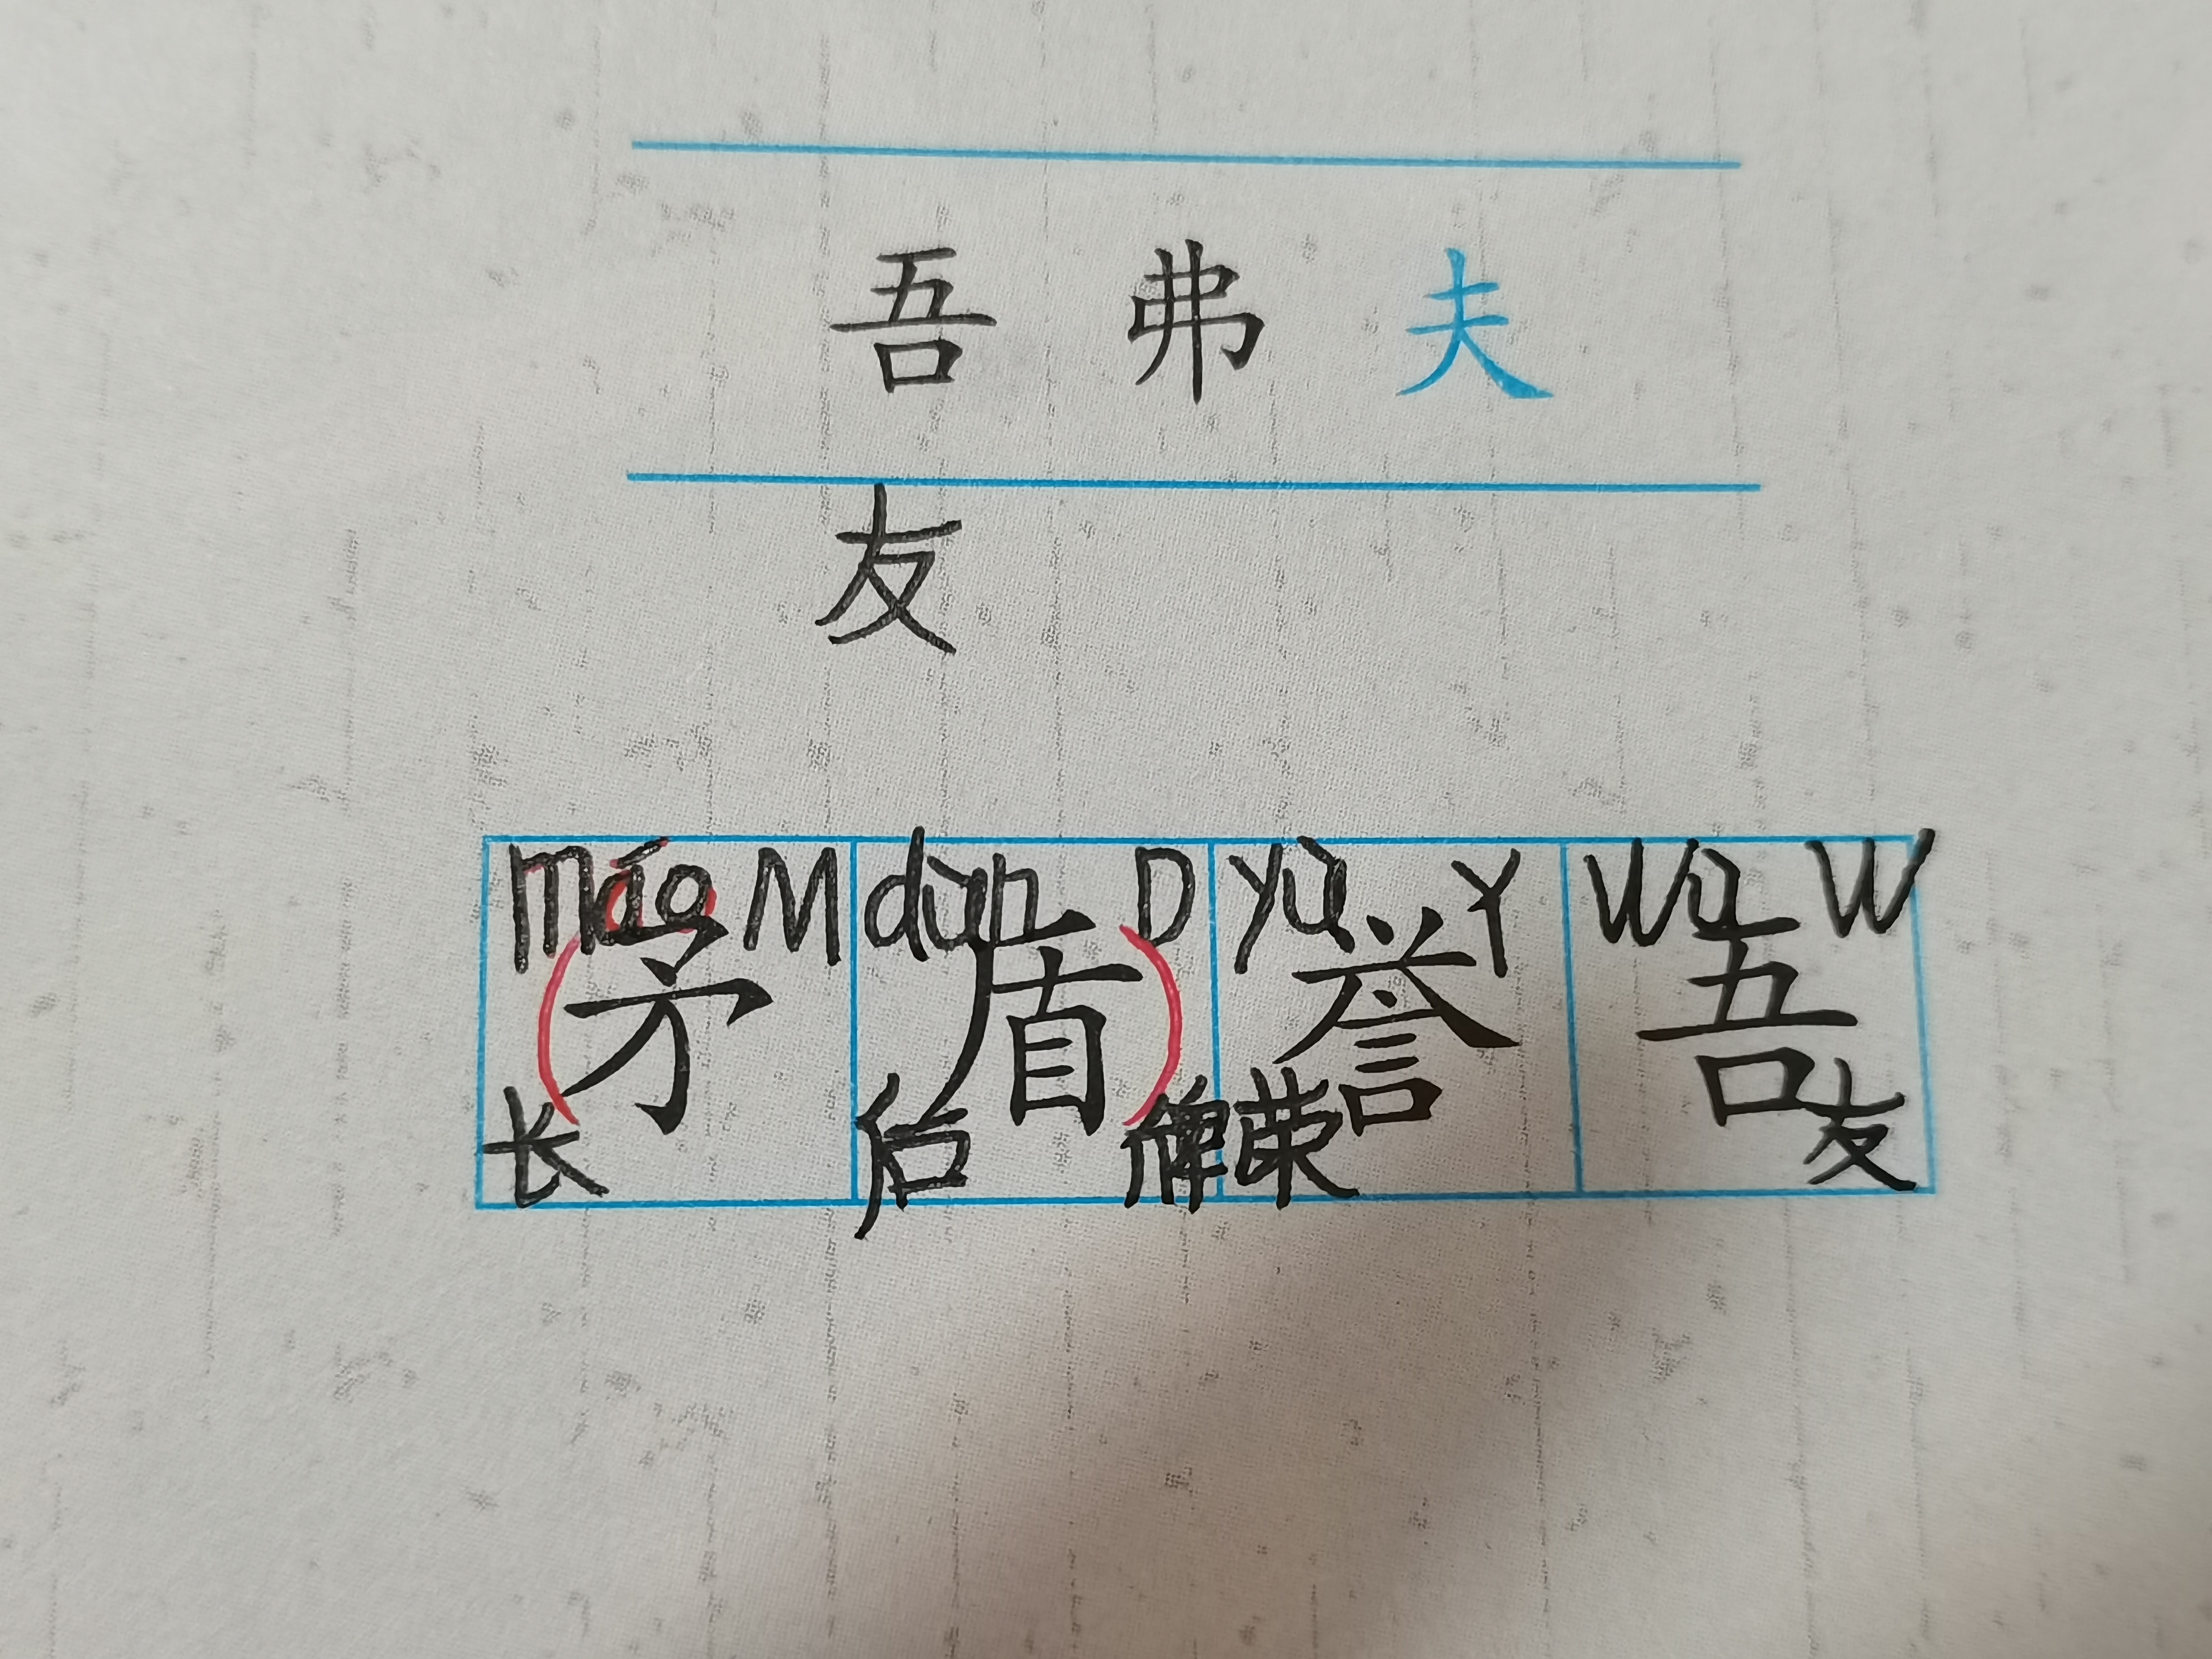 吾 弗 夫
友
máo M dùn D yù Y wú W
(矛 盾) 誉 吾
长 后 牌 荣 友